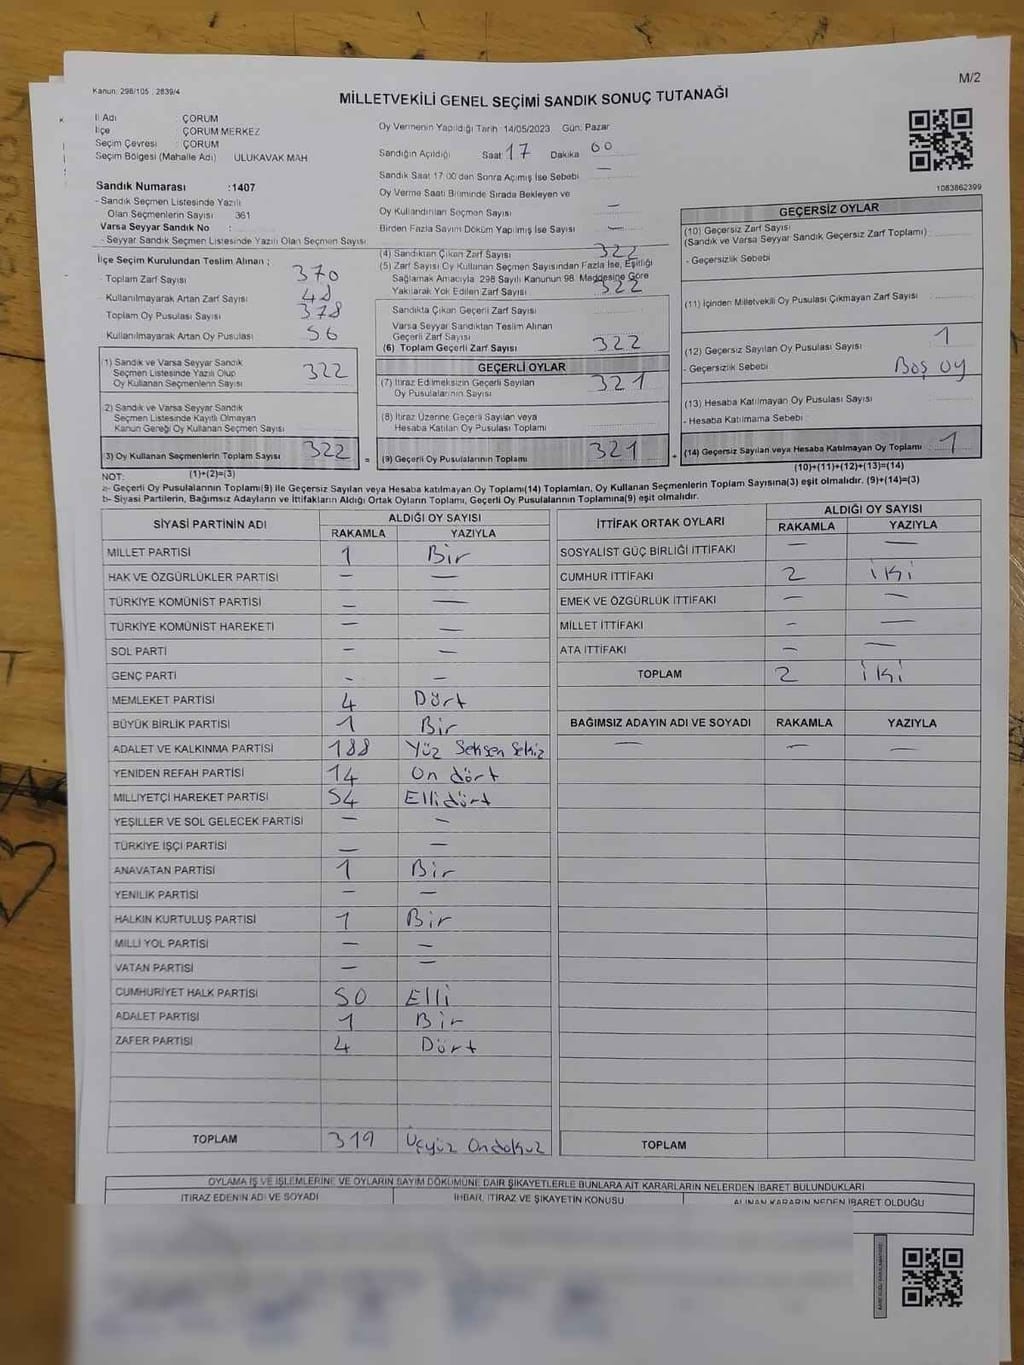 Kanun: 298/105 , 2839/4
M/2
MİLLETVEKİLİ GENEL SEÇİMİ SANDIK SONUÇ TUTANAĞI
İl Adı : ÇORUM
İlçe : ÇORUM MERKEZ
Seçim Çevresi : ÇORUM
Seçim Bölgesi (Mahalle Adı) ULUKAVAK MAH
Sandık Numarası :1407
- Sandık Seçmen Listesinde Yazılı
Olan Seçmenlerin Sayısı 361
Varsa Seyyar Sandık No :
- Seyyar Sandık Seçmen Listesinde Yazılı Olan Seçmen Sayısı
Oy Vermenin Yapıldığı Tarih 14/05/2023 Gün: Pazar
Sandığın Açıldığı Saat 17 Dakika 00
Sandık Saat 17:00'dan Sonra Açılmış İse Sebebi —
Oy Verme Saati Bitiminde Sırada Bekleyen ve
Oy Kullandırılan Seçmen Sayısı —
Birden Fazla Sayım Döküm Yapılmış İse Sayısı —
1083862399
İlçe Seçim Kurulundan Teslim Alınan ;
- Toplam Zarf Sayısı 370
- Kullanılmayarak Artan Zarf Sayısı 48
- Toplam Oy Pusulası Sayısı 378
- Kullanılmayarak Artan Oy Pusulası 56
1) Sandık ve Varsa Seyyar Sandık
Seçmen Listesinde Yazılı Olup
Oy Kullanan Seçmenlerin Sayısı 322
2) Sandık ve Varsa Seyyar Sandık
Seçmen Listesinde Kayıtlı Olmayan
Kanun Gereği Oy Kullanan Seçmen Sayısı
3) Oy Kullanan Seçmenlerin Toplam Sayısı 322
(1)+(2)=(3)
(4) Sandıktan Çıkan Zarf Sayısı 322
(5) Zarf Sayısı Oy Kullanan Seçmen Sayısından Fazla İse, Eşitliği
Sağlamak Amacıyla 298 Sayılı Kanunun 98. Maddesine Göre
Yakılarak Yok Edilen Zarf Sayısı 322
Sandıkta Çıkan Geçerli Zarf Sayısı
Varsa Seyyar Sandıktan Teslim Alınan
Geçerli Zarf Sayısı
(6) Toplam Geçerli Zarf Sayısı 322
GEÇERLİ OYLAR
(7) İtiraz Edilmeksizin Geçerli Sayılan
Oy Pusulalarının Sayısı 321
(8) İtiraz Üzerine Geçerli Sayılan veya
Hesaba Katılan Oy Pusulası Toplamı
= (9) Geçerli Oy Pusulalarının Toplamı 321
GEÇERSİZ OYLAR
(10) Geçersiz Zarf Sayısı
(Sandık ve Varsa Seyyar Sandık Geçersiz Zarf Toplamı) :
- Geçersizlik Sebebi
(11) İçinden Milletvekili Oy Pusulası Çıkmayan Zarf Sayısı
(12) Geçersiz Sayılan Oy Pusulası Sayısı 1
- Geçersizlik Sebebi Boş oy
(13) Hesaba Katılmayan Oy Pusulası Sayısı
- Hesaba Katılmama Sebebi :
+ (14) Geçersiz Sayılan veya Hesaba Katılmayan Oy Toplamı 1
(10)+(11)+(12)+(13)=(14)
NOT:
a- Geçerli Oy Pusulalarının Toplamı(9) ile Geçersiz Sayılan veya Hesaba katılmayan Oy Toplamı(14) Toplamları, Oy Kullanan Seçmenlerin Toplam Sayısına(3) eşit olmalıdır. (9)+(14)=(3)
b- Siyasi Partilerin, Bağımsız Adayların ve İttifakların Aldığı Ortak Oyların Toplamı, Geçerli Oy Pusulalarının Toplamına(9) eşit olmalıdır.
SİYASİ PARTİNİN ADI ALDIĞI OY SAYISI
RAKAMLA YAZIYLA
MİLLET PARTİSİ 1 Bir
HAK VE ÖZGÜRLÜKLER PARTİSİ — —
TÜRKİYE KOMÜNİST PARTİSİ — —
TÜRKİYE KOMÜNİST HAREKETİ — —
SOL PARTİ — —
GENÇ PARTİ - —
MEMLEKET PARTİSİ 4 Dört
BÜYÜK BİRLİK PARTİSİ 1 Bir
ADALET VE KALKINMA PARTİSİ 188 Yüz Seksen Sekiz
YENİDEN REFAH PARTİSİ 14 On dört
MİLLİYETÇİ HAREKET PARTİSİ 54 Ellidört
YEŞİLLER VE SOL GELECEK PARTİSİ — —
TÜRKİYE İŞÇİ PARTİSİ — —
ANAVATAN PARTİSİ 1 Bir
YENİLİK PARTİSİ — —
HALKIN KURTULUŞ PARTİSİ 1 Bir
MİLLİ YOL PARTİSİ — —
VATAN PARTİSİ — —
CUMHURİYET HALK PARTİSİ 50 Elli
ADALET PARTİSİ 1 Bir
ZAFER PARTİSİ 4 Dört
TOPLAM 319 Üçyüz Ondokuz
İTTİFAK ORTAK OYLARI ALDIĞI OY SAYISI
RAKAMLA YAZIYLA
SOSYALİST GÜÇ BİRLİĞİ İTTİFAKI — —
CUMHUR İTTİFAKI 2 iki
EMEK VE ÖZGÜRLÜK İTTİFAKI — —
MİLLET İTTİFAKI - —
ATA İTTİFAKI — —
TOPLAM 2 iki
BAĞIMSIZ ADAYIN ADI VE SOYADI RAKAMLA YAZIYLA
— — —
TOPLAM
OYLAMA İŞ VE İŞLEMLERİNE VE OYLARIN SAYIM DÖKÜMÜNE DAİR ŞİKAYETLERLE BUNLARA AİT KARARLARIN NELERDEN İBARET BULUNDUKLARI
İTİRAZ EDENİN ADI VE SOYADI İHBAR, İTİRAZ VE ŞİKAYETİN KONUSU ALINAN KARARIN NEDEN İBARET OLDUĞU